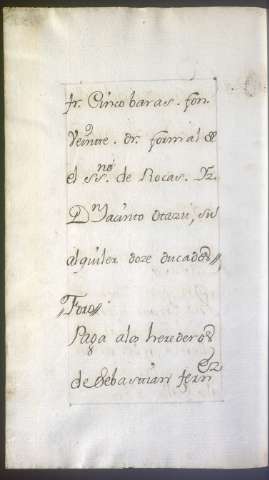 fr. Cinco baras. fon.
Veinte. dr. forma la
el sr.no de Rocas. Fz.
Dn Jacinto otazu, su
alquiler doze ducados,,
,,Foro,,
Paga alos herederos
de Sebastian fernez